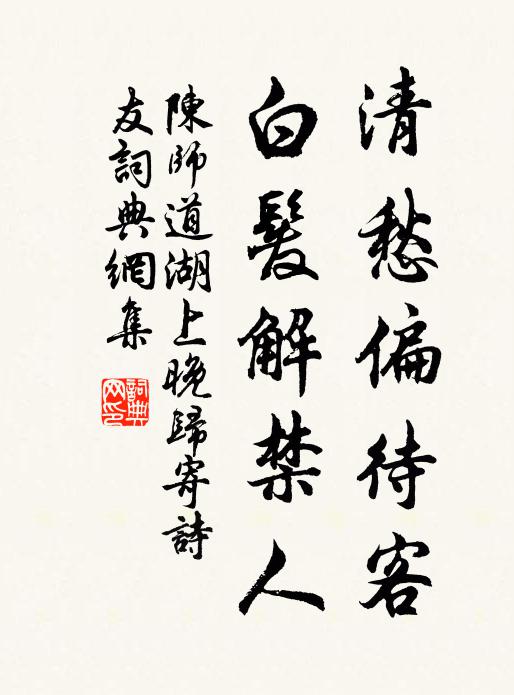 清愁偏待客
白髮解禁人
陳師道湖上晚歸寄詩
友詞典網集
詞典網印